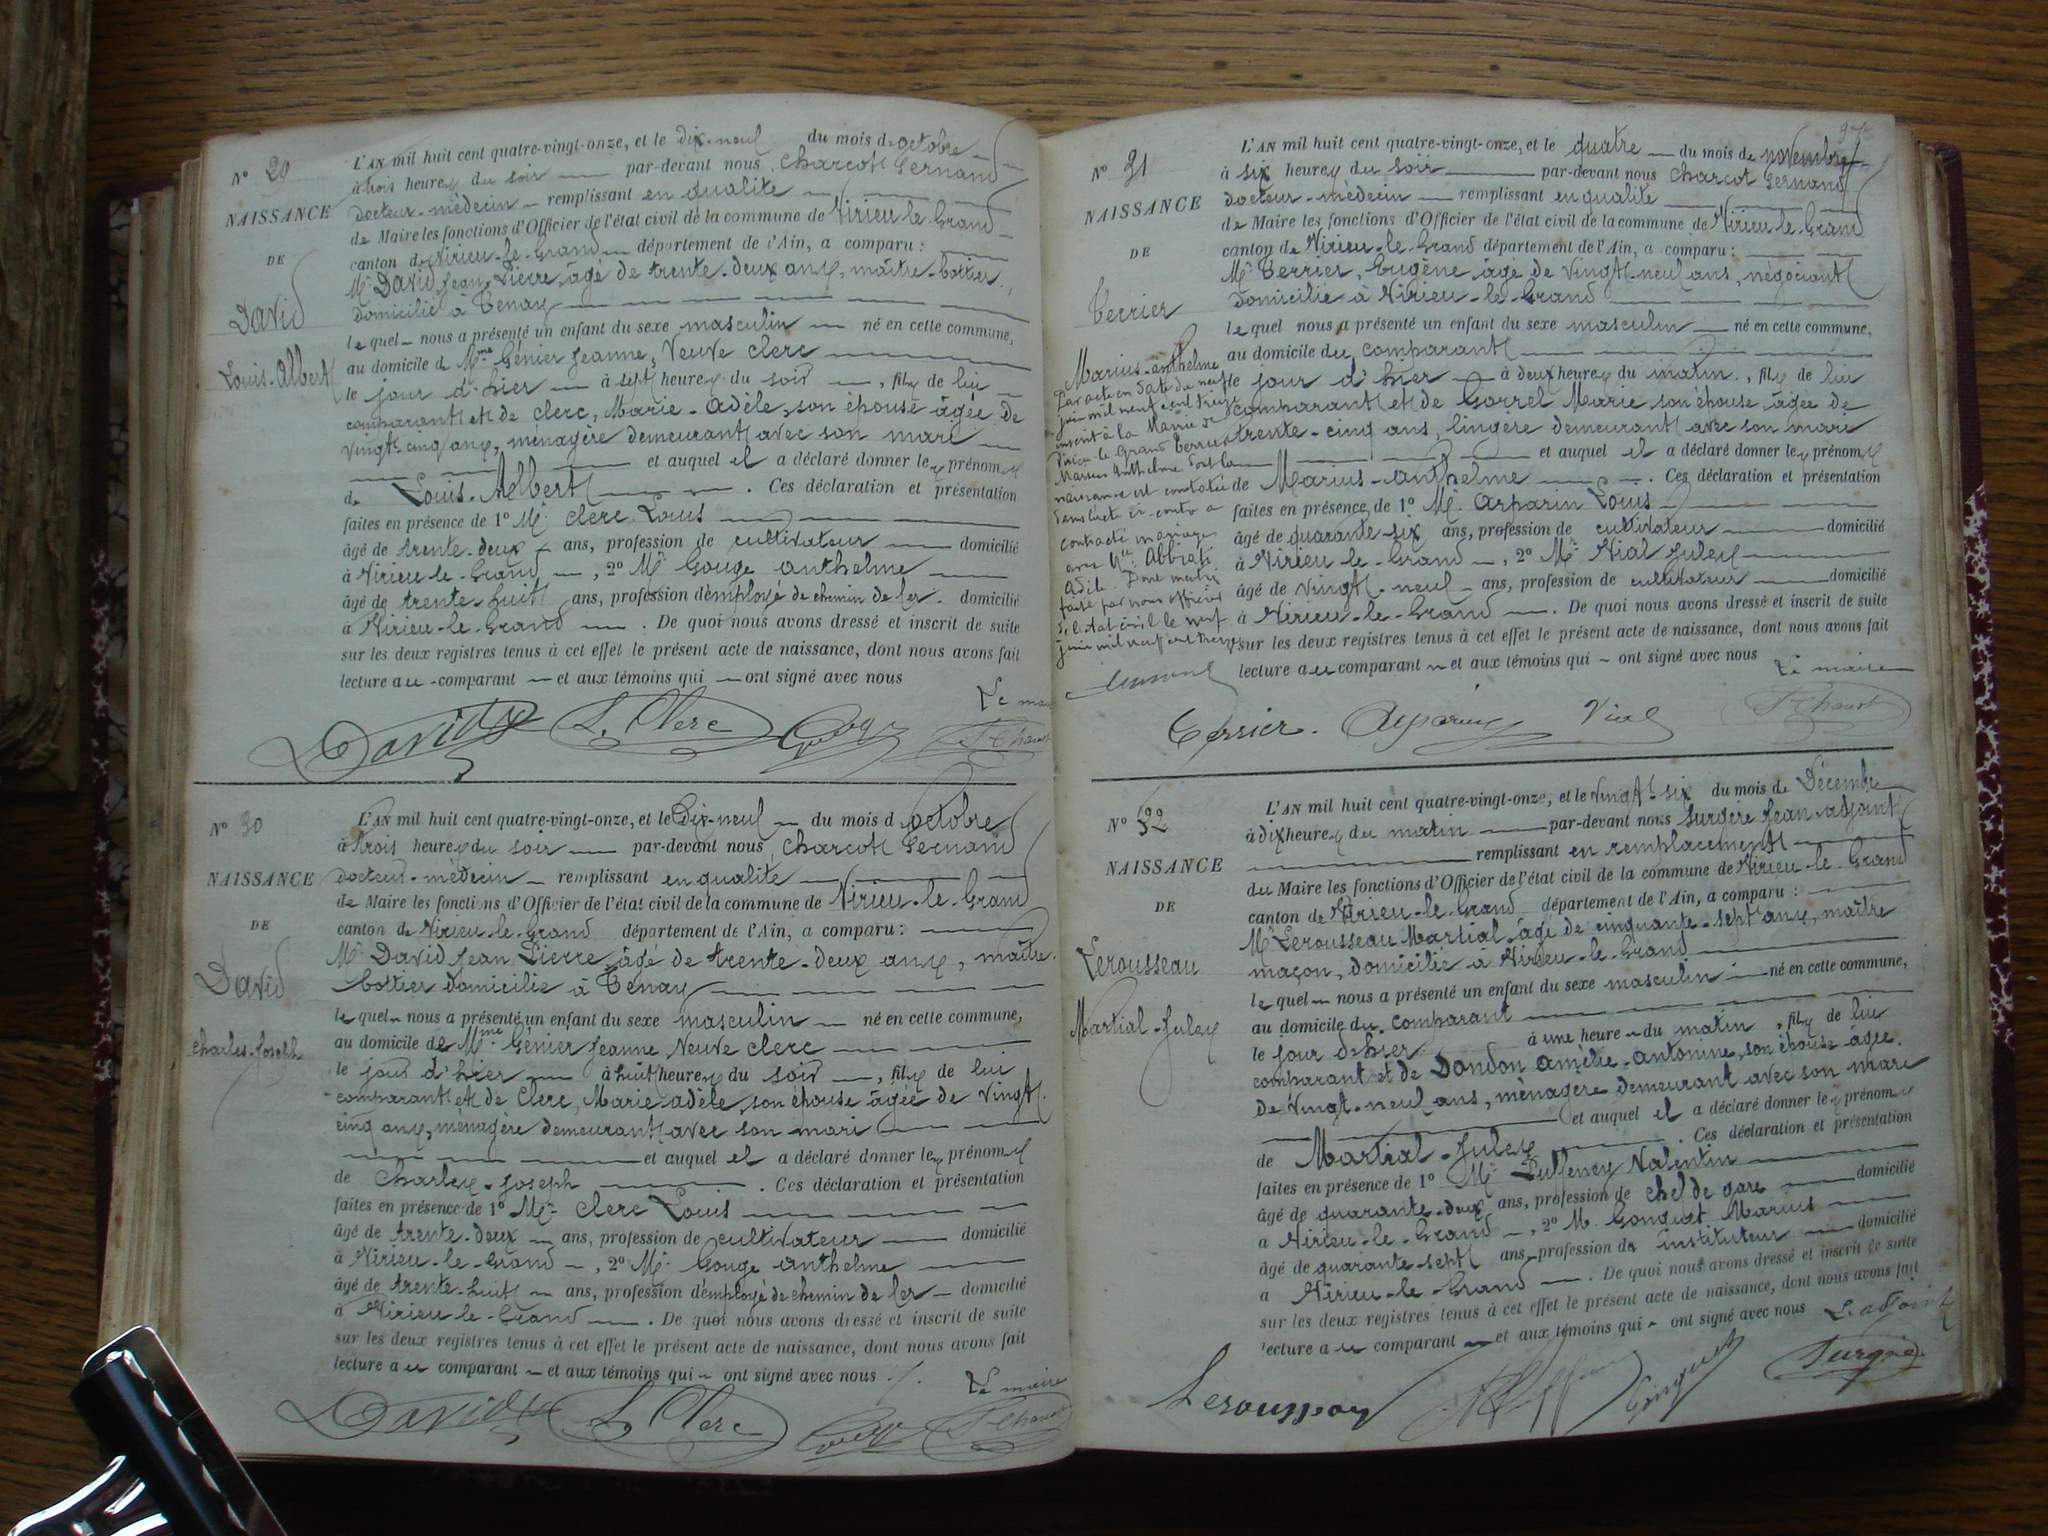 N° 29
NAISSANCE
DE
David
Louis-Albert
L'AN mil huit cent quatre-vingt-onze, et le dix-neuf du mois d'octobre
à trois heures du soir par-devant nous Charcot Fernand
docteur-médecin remplissant en qualité
de Maire les fonctions d'Officier de l'état civil de la commune de Virieu-le-Grand
canton de Virieu-le-Grand département de l'Ain, a comparu :
Mr David Jean Pierre, âgé de trente-deux ans, maître-bottier,
domicilié à Tenay
lequel nous a présenté un enfant du sexe masculin né en cette commune,
au domicile de Mme Génier Jeanne, Veuve Clerc
le jour d'hier à sept heures du soir, fils de lui
comparant et de Clerc, Marie-Adèle, son épouse âgée de
vingt-cinq ans, ménagère demeurant avec son mari
et auquel il a déclaré donner les prénoms
de Louis-Albert. Ces déclaration et présentation
faites en présence de 1° Mr Clerc Louis
âgé de trente-deux ans, profession de cultivateur domicilié
à Virieu-le-Grand, 2° Mr Gouge Anthelme
âgé de trente-huit ans, profession d'employé de chemin de fer domicilié
à Virieu-le-Grand. De quoi nous avons dressé et inscrit de suite
sur les deux registres tenus à cet effet le présent acte de naissance, dont nous avons fait
lecture au comparant et aux témoins qui ont signé avec nous
Le maire
David L. Clerc Gouge F. Charcot
N° 30
NAISSANCE
DE
David
Charles-Joseph
L'AN mil huit cent quatre-vingt-onze, et le Dix-neuf du mois d'octobre
à trois heures du soir par-devant nous Charcot Fernand
docteur-médecin remplissant en qualité
de Maire les fonctions d'Officier de l'état civil de la commune de Virieu-le-Grand
canton de Virieu-le-Grand département de l'Ain, a comparu :
Mr David Jean Pierre, âgé de trente-deux ans, maître-
bottier domicilié à Tenay
lequel nous a présenté un enfant du sexe masculin né en cette commune,
au domicile de Mme Génier Jeanne Veuve Clerc
le jour d'hier à huit heures du soir, fils de lui
comparant et de Clerc, Marie Adèle, son épouse âgée de vingt-
cinq ans, ménagère demeurant avec son mari
et auquel il a déclaré donner les prénoms
de Charles-Joseph. Ces déclaration et présentation
faites en présence de 1° Mr Clerc Louis
âgé de trente-deux ans, profession de cultivateur domicilié
à Virieu-le-Grand, 2° Mr Gouge Anthelme
âgé de trente-huit ans, profession d'employé de chemin de fer domicilié
à Virieu-le-Grand. De quoi nous avons dressé et inscrit de suite
sur les deux registres tenus à cet effet le présent acte de naissance, dont nous avons fait
lecture au comparant et aux témoins qui ont signé avec nous
Le maire
David L. Clerc Gouge F. Charcot
N° 31
NAISSANCE
DE
Terrier
Marius-Anthelme
Par acte en date du neuf
juin mil neuf cent treize
inscrit à la Mairie de
Virieu-le-Grand Terrier
Marius Anthelme dont la
naissance est constatée
dans l'acte ci-contre a
contracté mariage
avec Mlle Abbiati
Adèle. Dont mention
faite par nous officier
de l'état civil le neuf
juin mil neuf cent treize
L'AN mil huit cent quatre-vingt-onze, et le quatre du mois de novembre
à six heures du soir par-devant nous Charcot Fernand
docteur-médecin remplissant en qualité
de Maire les fonctions d'Officier de l'état civil de la commune de Virieu-le-Grand
canton de Virieu-le-Grand département de l'Ain, a comparu :
Mr Terrier, Eugène, âgé de vingt-neuf ans, négociant
domicilié à Virieu-le-Grand
lequel nous a présenté un enfant du sexe masculin né en cette commune,
au domicile du comparant
le jour d'hier à deux heures du matin, fils de lui
comparant et de Gorrel Marie son épouse âgée de
trente-cinq ans, lingère demeurant avec son mari
et auquel il a déclaré donner les prénoms
de Marius-Anthelme. Ces déclaration et présentation
faites en présence de 1° Mr Arparin Louis
âgé de quarante-six ans, profession de cultivateur domicilié
à Virieu-le-Grand, 2° Mr Vial Jules
âgé de vingt-neuf ans, profession de cultivateur domicilié
à Virieu-le-Grand. De quoi nous avons dressé et inscrit de suite
sur les deux registres tenus à cet effet le présent acte de naissance, dont nous avons fait
lecture au comparant et aux témoins qui ont signé avec nous
Le maire
Terrier. Arparin Vial F. Charcot
N° 32
NAISSANCE
DE
Lerousseau
Martial-Jules
L'AN mil huit cent quatre-vingt-onze, et le vingt-six du mois de Décembre
à dix heures du matin par-devant nous Surgère Jean adjoint
remplissant en remplacement
du Maire les fonctions d'Officier de l'état civil de la commune de Virieu-le-Grand
canton de Virieu-le-Grand département de l'Ain, a comparu :
Mr Lerousseau Martial, âgé de cinquante-sept ans, maître
maçon, domicilié à Virieu-le-Grand
lequel nous a présenté un enfant du sexe masculin né en cette commune,
au domicile du comparant
le jour d'hier à une heure du matin, fils de lui
comparant et de Dondon Amélie-Antonine, son épouse âgée
de vingt-neuf ans, ménagère demeurant avec son mari
et auquel il a déclaré donner les prénoms
de Martial-Jules. Ces déclaration et présentation
faites en présence de 1° Mr Valentin
âgé de quarante-deux ans, profession de chef de gare domicilié
à Virieu-le-Grand, 2° M. Gonguet Marius
âgé de quarante-sept ans profession de instituteur domicilié
à Virieu-le-Grand. De quoi nous avons dressé et inscrit de suite
sur les deux registres tenus à cet effet le présent acte de naissance, dont nous avons fait
lecture au comparant et aux témoins qui ont signé avec nous L'adjoint
Lerousseau Gonguet Surgère